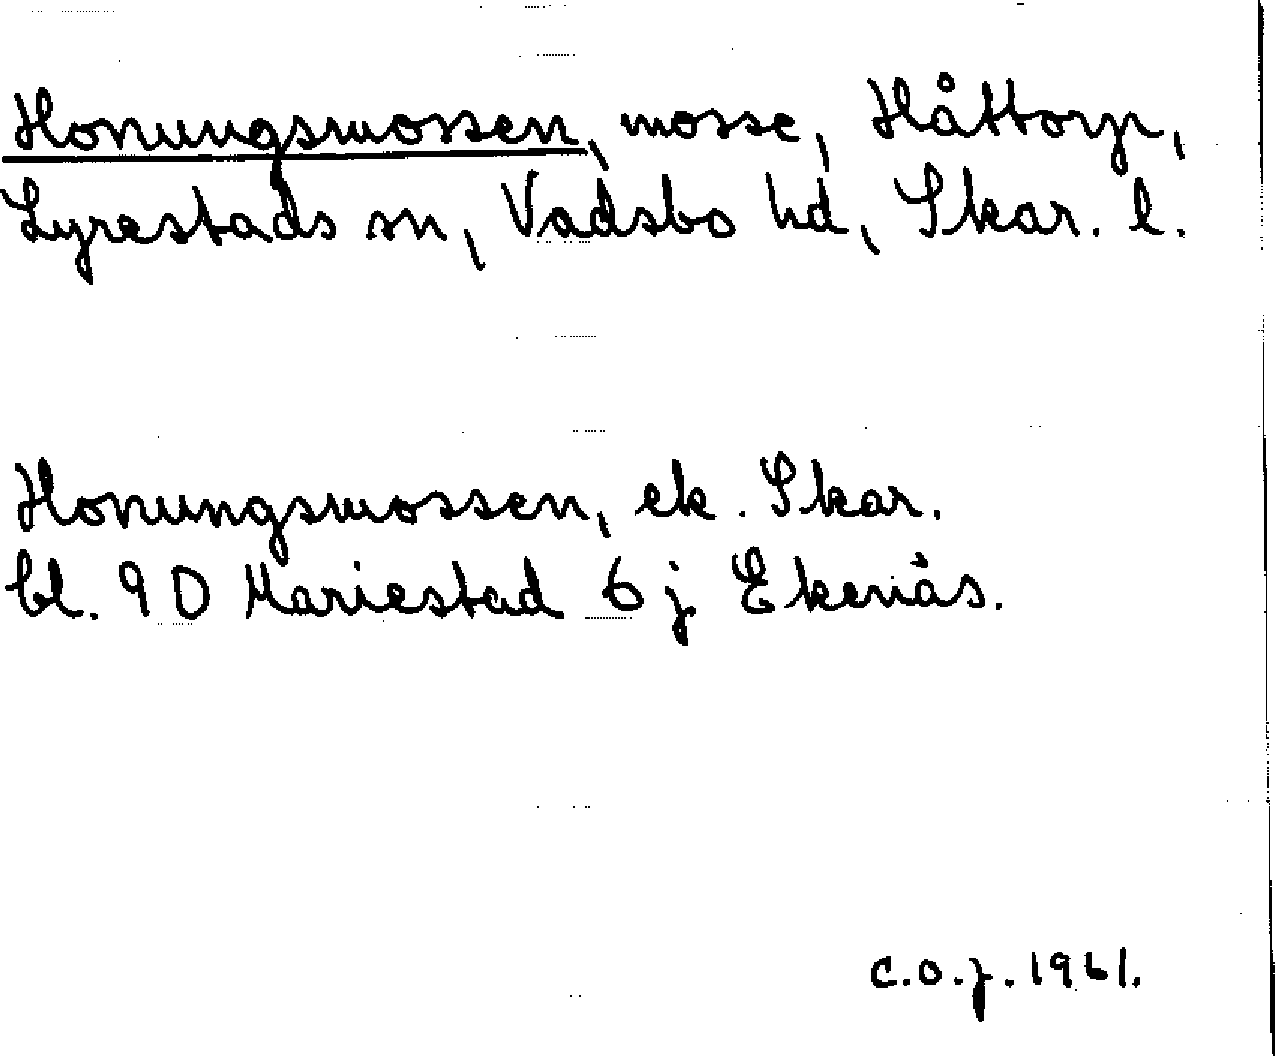 Honungsmossen, mosse, Håttorp,
Lyrestads sn, Vadsbo hd, Skar. l.
Honungsmossen, ek. Skar.
bl. 9 D Mariestad 6 j Ekenäs.
C.O.J. 1961.